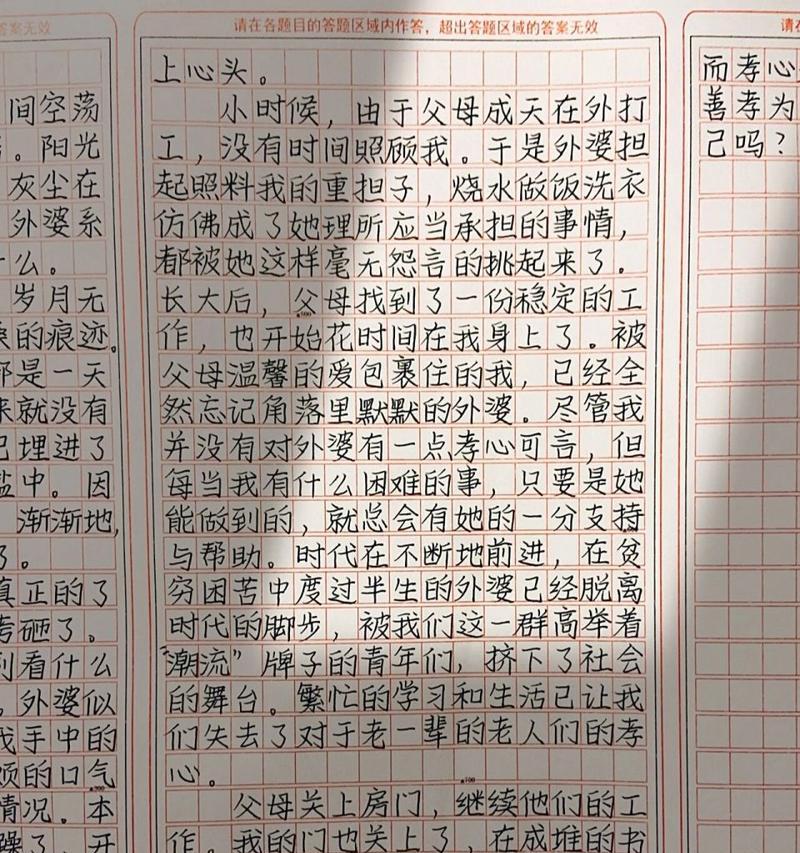 答案无效
间空荡
。阳光
灰尘在
外婆系
么。
岁月无
的痕迹。
是一天
来就没有
己埋进了
盐中。因
渐渐地,
了。
真正的了
考砸了。
到看什么
,外婆似
我手中的
烦的口气
情况。本
躁了,开
请在各题目的答题区域内作答,超出答题区域的答案无效
上心头。
小时候,由于父母成天在外打
工,没有时间照顾我。于是外婆担
起照料我的重担子,烧水做饭洗衣
仿佛成了她理所应当承担的事情,
都被她这样毫无怨言的挑起来了。
长大后,父母找到了一份稳定的工
作,也开始花时间在我身上了。被
父母温馨的爱包裹住的我,已经全
然忘记角落里默默的外婆。尽管我
并没有对外婆有一点孝心可言,但
每当我有什么困难的事,只要是她
能做到的,就总会有她的一分支持
与帮助。时代在不断地前进,在贫
穷困苦中度过半生的外婆已经脱离
时代的脚步,被我们这一群高举着
“潮流”牌子的青年们,挤下了社会
的舞台。繁忙的学习和生活已让我
们失去了对于老一辈的老人们的孝
心。
父母关上房门,继续他们的工
作。我的门也关上了,在成堆的书
请在
而孝心
善孝为
己吗?